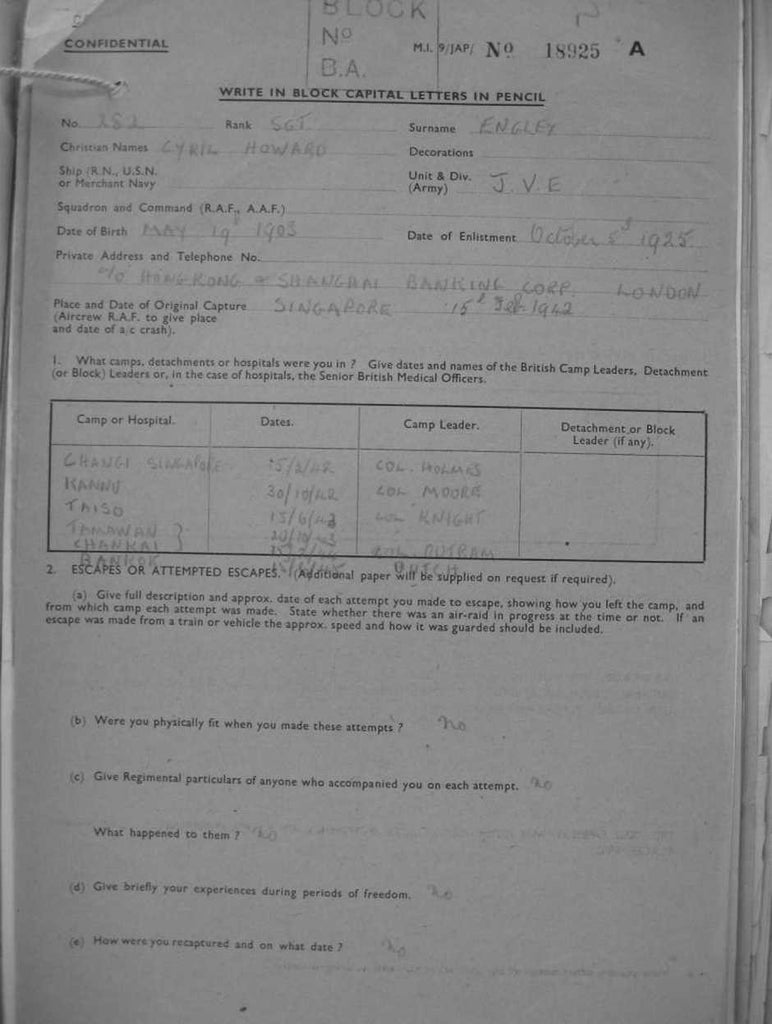 BLOCK
CONFIDENTIAL
No
M.I. 9/JAP/ No 18925 A
B.A.
WRITE IN BLOCK CAPITAL LETTERS IN PENCIL
No. 282 Rank SGT Surname ENGLEY
Christian Names CYRIL HOWARD Decorations
Ship (R.N., U.S.N. or Merchant Navy Unit & Div. (Army) J.V.E
Squadron and Command (R.A.F., A.A.F.)
Date of Birth MAY 19th 1903 Date of Enlistment October 5th 1925
Private Address and Telephone No.
c/o HONGKONG & SHANGHAI BANKING CORP. LONDON
Place and Date of Original Capture SINGAPORE 15th Feb. 1942
(Aircrew R.A.F. to give place
and date of a/c crash).
1. What camps, detachments or hospitals were you in ? Give dates and names of the British Camp Leaders, Detachment
(or Block) Leaders or, in the case of hospitals, the Senior British Medical Officers.
Camp or Hospital. Dates. Camp Leader. Detachment or Block Leader (if any).
CHANGI SINGAPORE 15/2/42 COL. HOLMES
KANNU 30/10/42 COL MOORE
TAISO 15/6/43 COL KNIGHT
TAMAWAN } 20/10/43
CHANKAI
BANKOK
2. ESCAPES OR ATTEMPTED ESCAPES. (Additional paper will be supplied on request if required).
(a) Give full description and approx. date of each attempt you made to escape, showing how you left the camp, and
from which camp each attempt was made. State whether there was an air-raid in progress at the time or not. If an
escape was made from a train or vehicle the approx. speed and how it was guarded should be included.
(b) Were you physically fit when you made these attempts ? No
(c) Give Regimental particulars of anyone who accompanied you on each attempt. No
What happened to them ? No
(d) Give briefly your experiences during periods of freedom. No
(e) How were you recaptured and on what date ? No